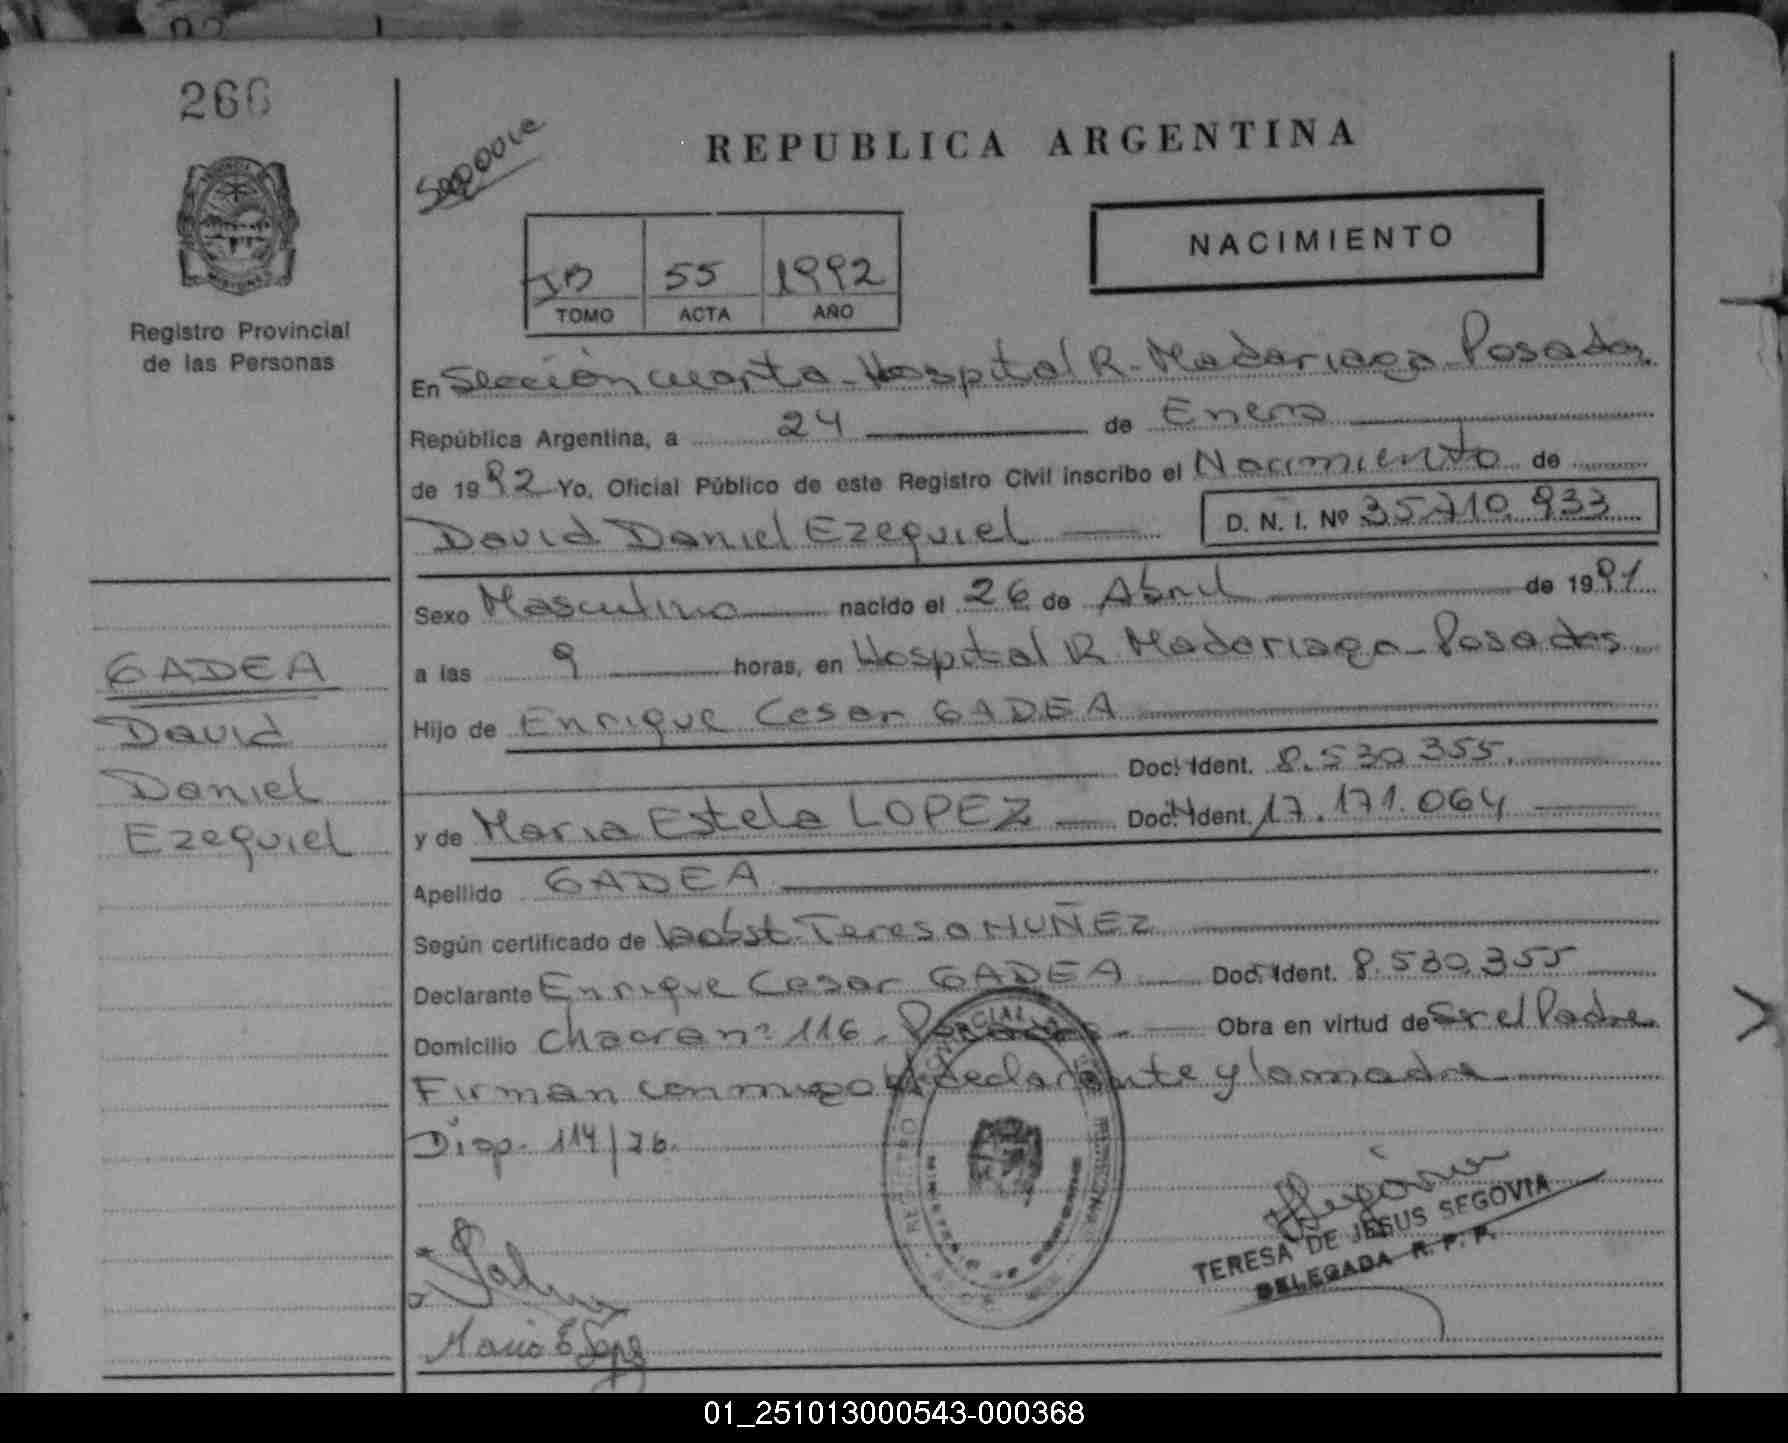 266
REPUBLICA ARGENTINA
NACIMIENTO
55 1992
TOMO ACTA AÑO
Registro Provincial
de las Personas
En Sección cuarta - Hospital R. Madariaga - Posadas
República Argentina, a 24 de Enero
de 1992 Yo, Oficial Público de este Registro Civil inscribo el Nacimiento de
David Daniel Ezequiel D. N. I. Nº 35.710.933
Sexo Masculino nacido el 26 de Abril de 1991
a las 9 horas, en Hospital R. Madariaga - Posadas
Hijo de Enrique Cesar GADEA
Doc. Ident. 8.530.355
y de Maria Estela LOPEZ Doc. Ident. 17.171.064
Apellido GADEA
Según certificado de Teresa NUÑEZ
Declarante Enrique Cesar GADEA Doc. Ident. 8.530.355
Domicilio Chacra nº 116 - Posadas - Obra en virtud de Ser el Padre
Firman conmigo el declarante y la madre
Disp. 114/76.
GADEA
David
Daniel
Ezequiel
TERESA DE JESUS SEGOVIA
DELEGADA R. P. P.
Maria E Lopez
01_251013000543-000368